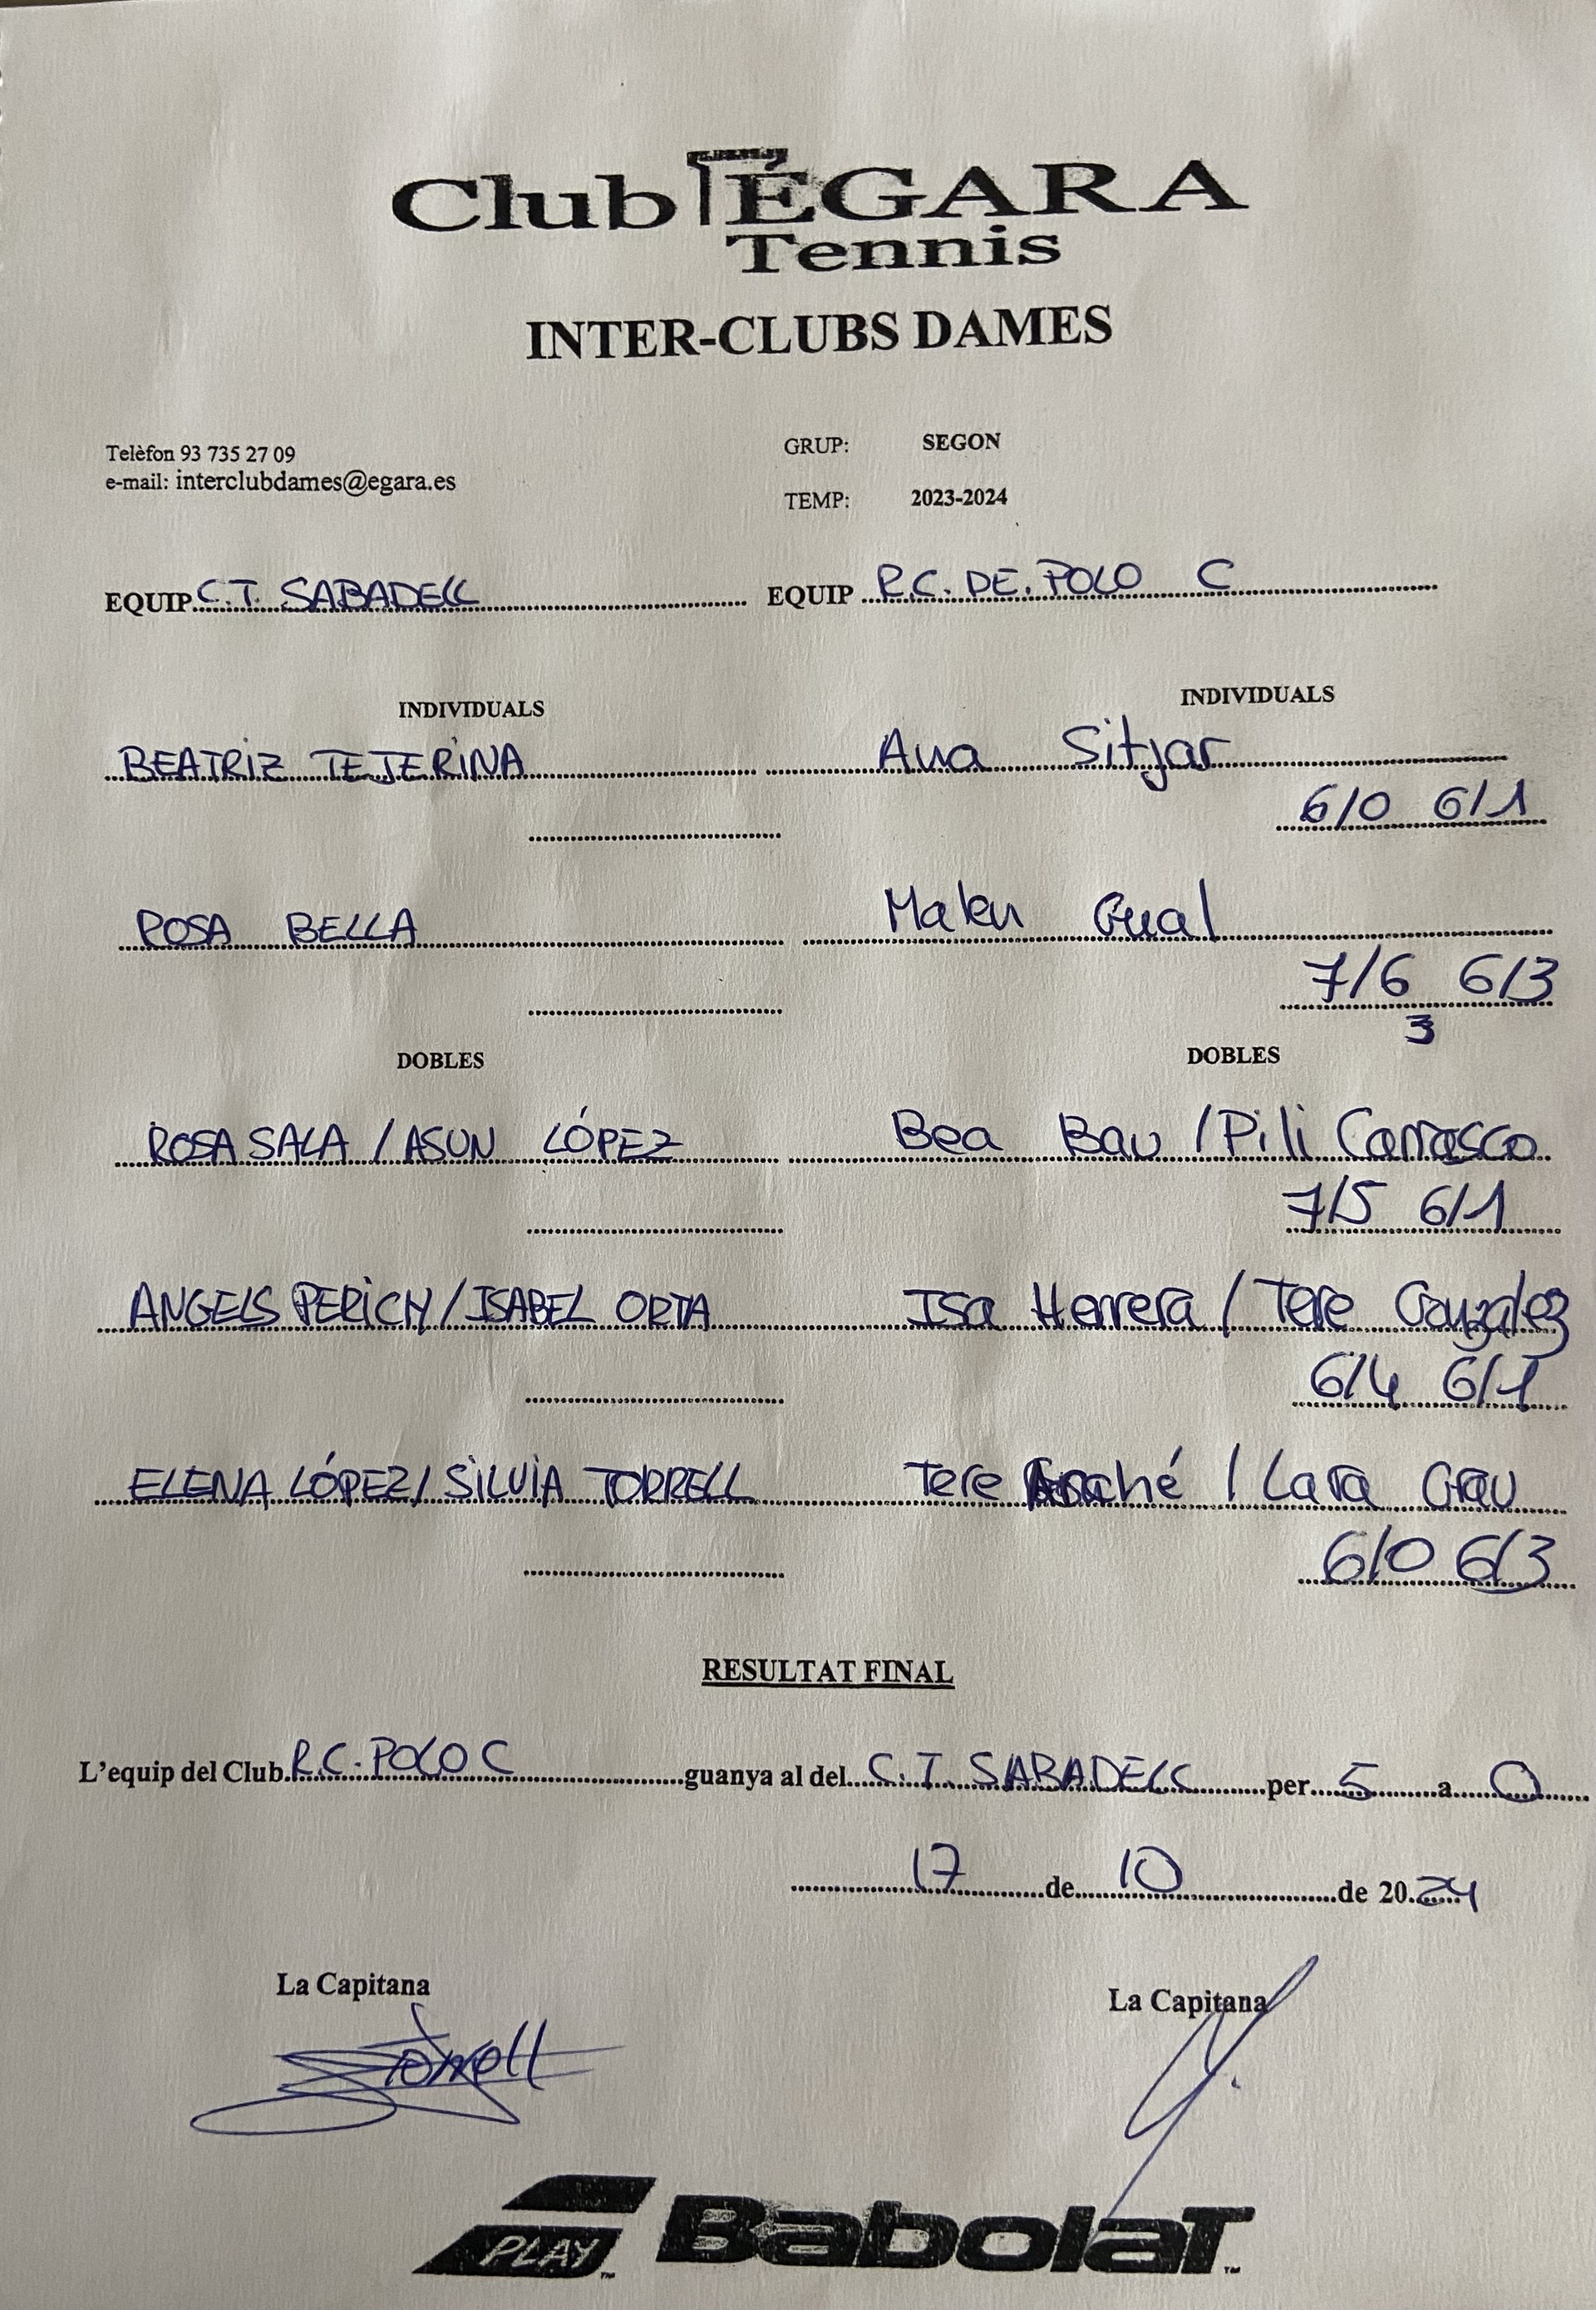 Club ÈGARA
Tennis
INTER-CLUBS DAMES
Telèfon 93 735 27 09
e-mail: interclubdames@egara.es
GRUP: SEGON
TEMP: 2023-2024
EQUIP C.T. SABADELL EQUIP R.C. DE. POLO C
INDIVIDUALS INDIVIDUALS
BEATRIZ TEJERINA Ana Sitjar
6/0 6/1
ROSA BELLA Maleu Gual
7/6 6/3
3
DOBLES DOBLES
ROSA SALA / ASUN LÓPEZ Bea Bau / Pili Carrasco
7/5 6/1
ANGELS PERICH / ISABEL ORTA Isa Herrera / Tere Gonzalez
6/4 6/1
ELENA LÓPEZ / SILVIA TORRELL Tere / Lara Grau
6/0 6/3
RESULTAT FINAL
L'equip del Club R.C. POLO C guanya al del C.T. SABADELL per 5 a 0
17 de 10 de 2024
La Capitana La Capitana
PLAY Babolat